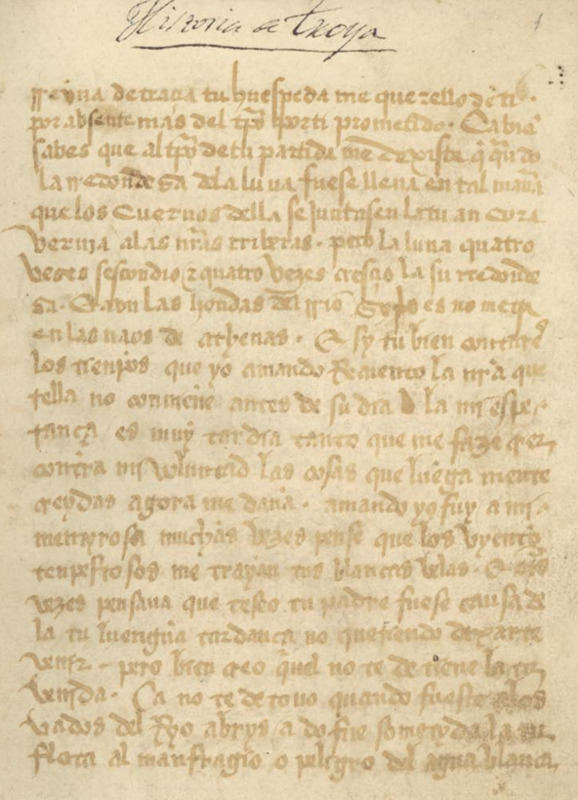 Historia de troya
rreyna de traçia tu huespeda me querello de ti
por absente mas del tpo por ti prometido. Ca bie
sabes que al tpo de tu partida me dexiste q qndo
la rredondesa dela luna fuese llena en tal manera
que los cuernos della se juntasen la tu ancora
vernia a las nras rriberas. pero la luna quatro
veses sescondio z quatro vezes cresçio la su rredonde
sa. E avn las hondas del rrio es no mete
en las naos de athenas. E sy tu bien contares
los tienpos que yo amando Recuento la nra que
rella no conviene antes de su dia la mi espe
rança es muy tardia tanto que me faze creer
contra mi voluntad las cosas que luenga mente
creydas agora me dana. amando yo fuy a mi
mentyrosa muchas vezes pense que los vyentos
tenpestosos me trayan tus blancas velas. E otras
vezes pensava que teseo tu padre fuese causa de
la tu luengua tardança no queriendo dexarte
venir. pero bien creo quel no te detiene la tu
venida. Ca no te detovo quando fueste a los
vados del Ryo abrys a do fue sometyda la tu
flota al manfragio o peligro del agua blanca